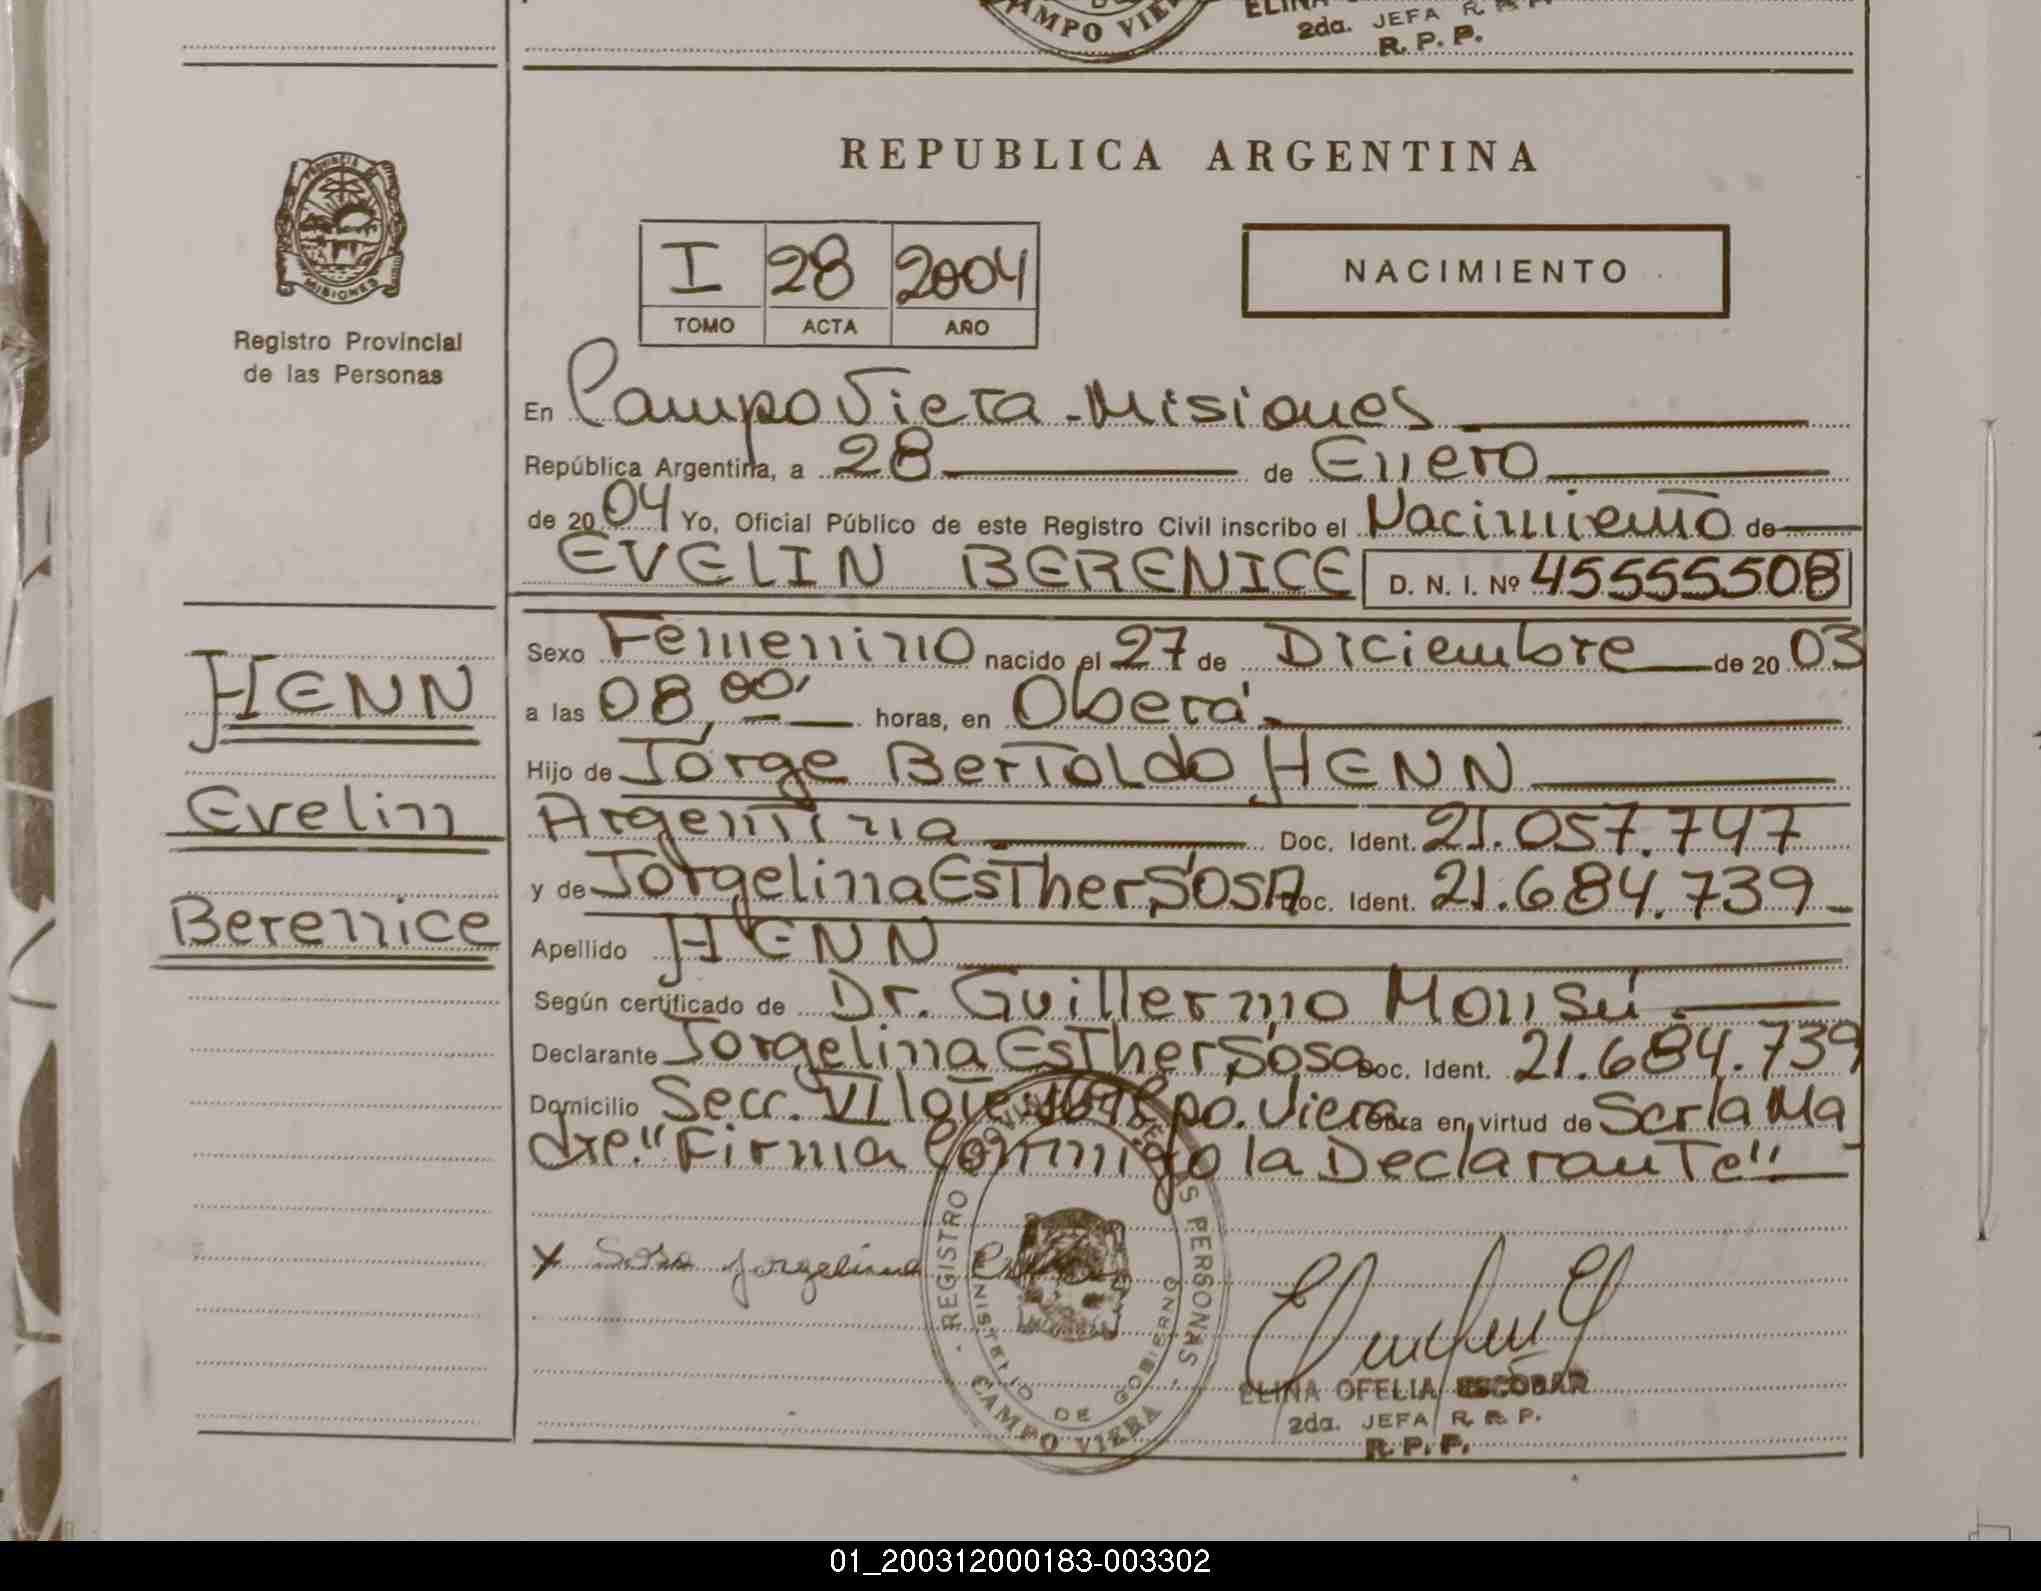 CAMPO VIERA
2da. JEFA R. R. P.
R. P. P.
REPUBLICA ARGENTINA
PROVINCIA
MISIONES
Registro Provincial
de las Personas
I 28 2004
TOMO ACTA AÑO
NACIMIENTO
En Campo Viera - Misiones
República Argentina, a 28 de Enero
de 2004 Yo, Oficial Público de este Registro Civil inscribo el Nacimiento de
EVELIN BERENICE D. N. I. Nº 45555508
HENN
Evelin
Berenice
Sexo Femenino nacido el 27 de Diciembre de 20 03
a las 08,00 horas, en Oberá
Hijo de Jorge Bertoldo HENN
Argentina Doc. Ident. 21.057.747
y de Jorgelina Esther SOSA Doc. Ident. 21.684.739
Apellido HENN
Según certificado de Dr. Guillermo Monsú.
Declarante Jorgelina Esther Sosa Doc. Ident. 21.684.739
Domicilio Secc. VI lote Cpo. Viera Obra en virtud de Ser la Ma
dre. "Firma Conmigo la Declarante"
x Sosa Jorgelina
REGISTRO PROVINCIAL DE LAS PERSONAS
MINISTERIO DE GOBIERNO
CAMPO VIERA
ELINA OFELIA ESCOBAR
2da. JEFA R. R. P.
R. P. P.
01_200312000183-003302